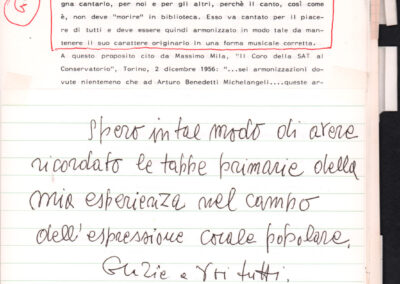 5
gna cantarlo, per noi e per gli altri, perchè il canto, così come
è, non deve "morire" in biblioteca. Esso va cantato per il piace-
re di tutti e deve essere quindi armonizzato in modo tale da man-
tenere il suo carattere originario in una forma musicale corretta.
A questo proposito cito da Massimo Mila, "Il Coro della SAT al
Conservatorio", Torino, 2 dicembre 1956: "...sei armonizzazioni do-
vute nientemeno che ad Arturo Benedetti Michelangeli....queste ar-
Spero in tal modo di avere
ricordato le tappe primarie della
mia esperienza nel campo
dell'espressione corale popolare.
Grazie a Voi tutti.